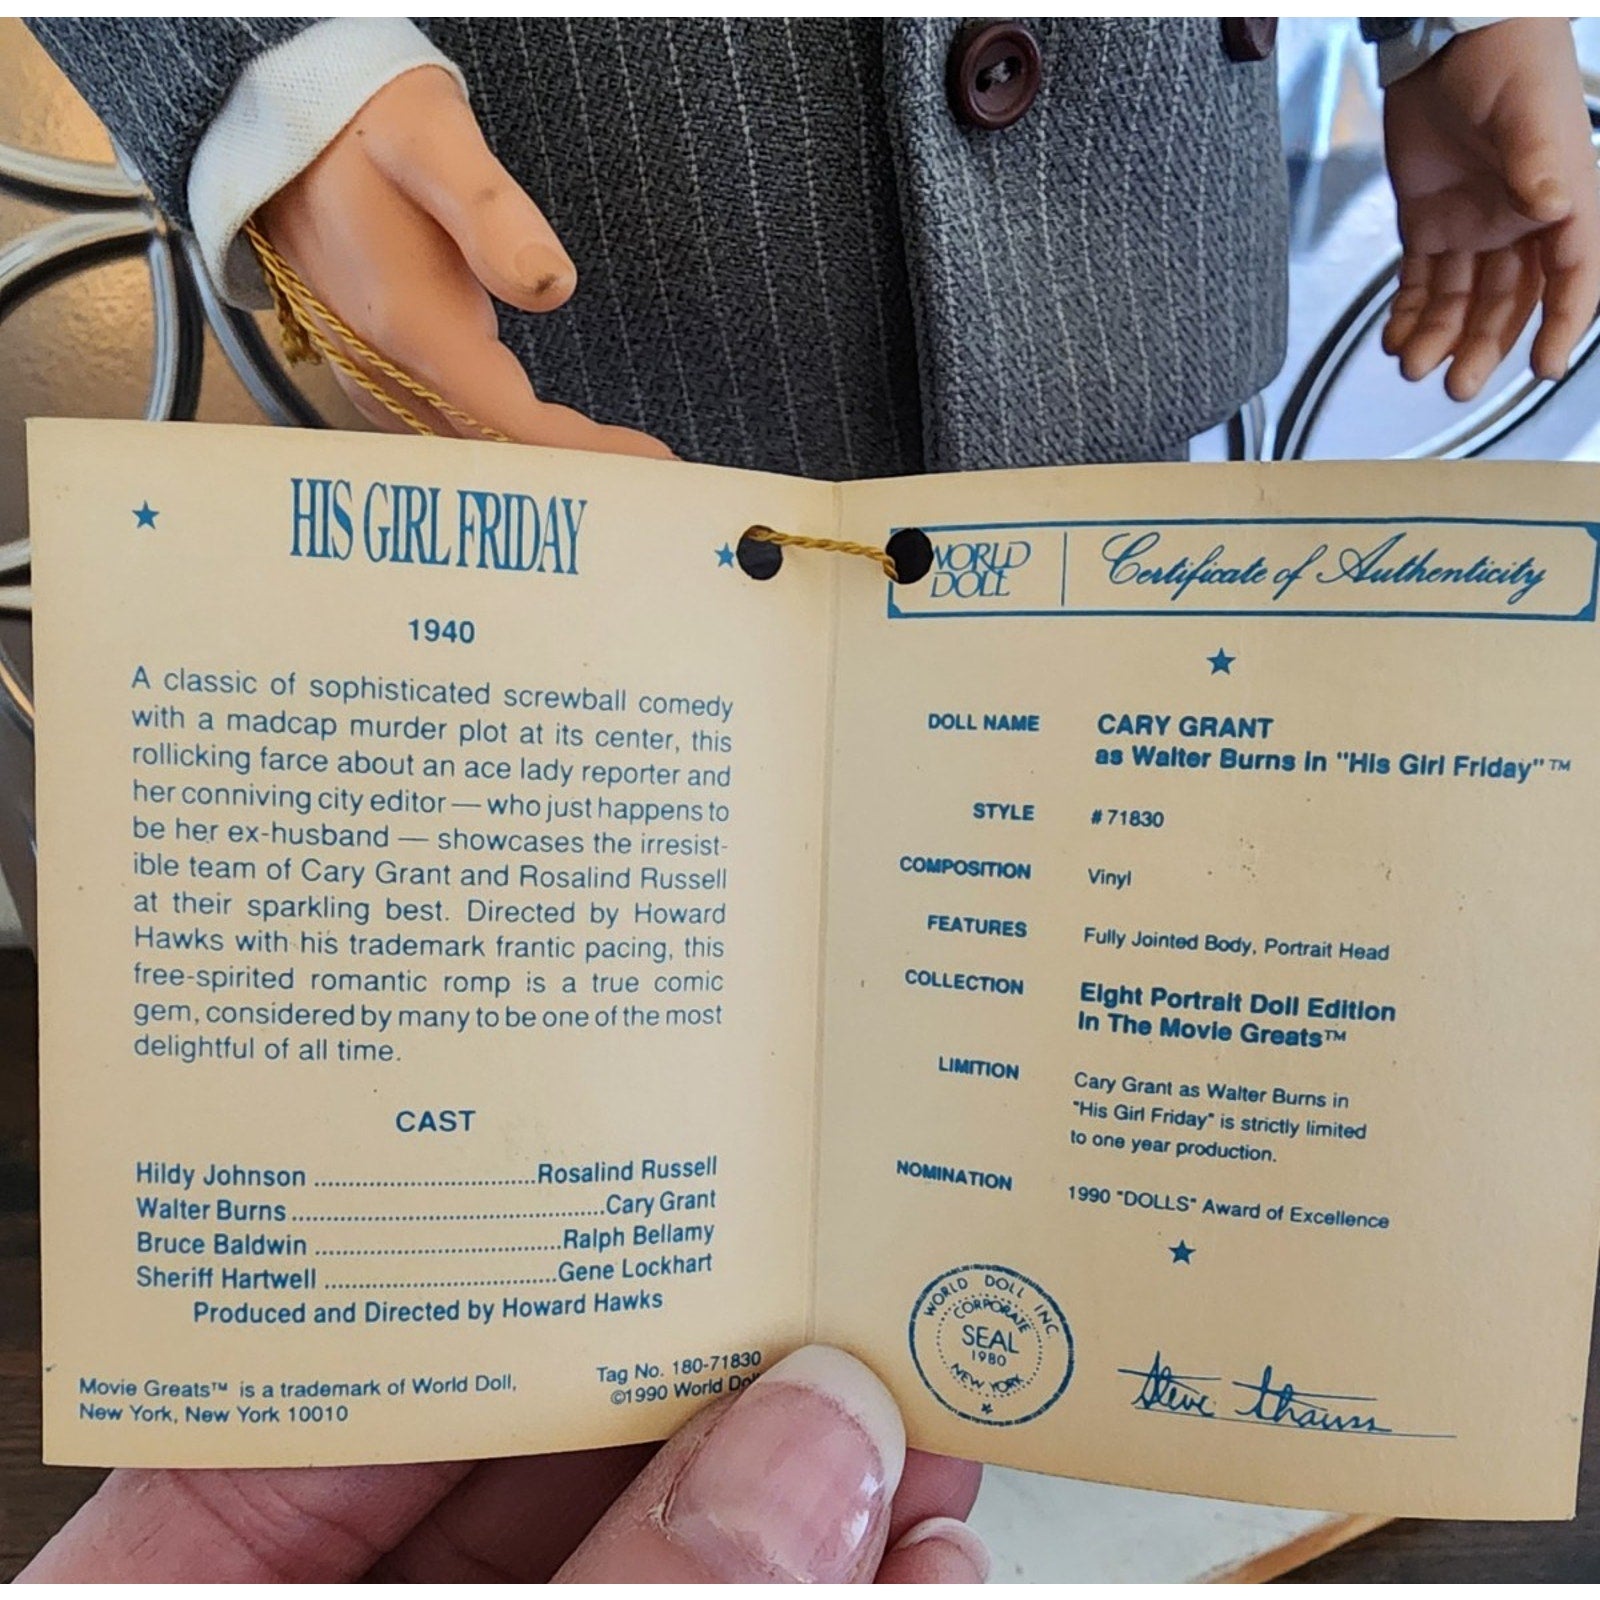 HIS GIRL FRIDAY
1940
A classic of sophisticated screwball comedy
with a madcap murder plot at its center, this
rollicking farce about an ace lady reporter and
her conniving city editor — who just happens to
be her ex-husband — showcases the irresist-
ible team of Cary Grant and Rosalind Russell
at their sparkling best. Directed by Howard
Hawks with his trademark frantic pacing, this
free-spirited romantic romp is a true comic
gem, considered by many to be one of the most
delightful of all time.
CAST
Hildy Johnson ..................................Rosalind Russell
Walter Burns ................................................Cary Grant
Bruce Baldwin ......................................Ralph Bellamy
Sheriff Hartwell ...................................Gene Lockhart
Produced and Directed by Howard Hawks
Movie Greats™ is a trademark of World Doll,
New York, New York 10010
Tag No. 180-71830
©1990 World
WORLD
DOLL
Certificate of Authenticity
DOLL NAME CARY GRANT
as Walter Burns in "His Girl Friday"™
STYLE #71830
COMPOSITION Vinyl
FEATURES Fully Jointed Body, Portrait Head
COLLECTION Eight Portrait Doll Edition
In The Movie Greats™
LIMITION Cary Grant as Walter Burns in
"His Girl Friday" is strictly limited
to one year production.
NOMINATION 1990 "DOLLS" Award of Excellence
WORLD DOLL INC.
CORPORATE
SEAL
1980
NEW YORK
Steve Strauss